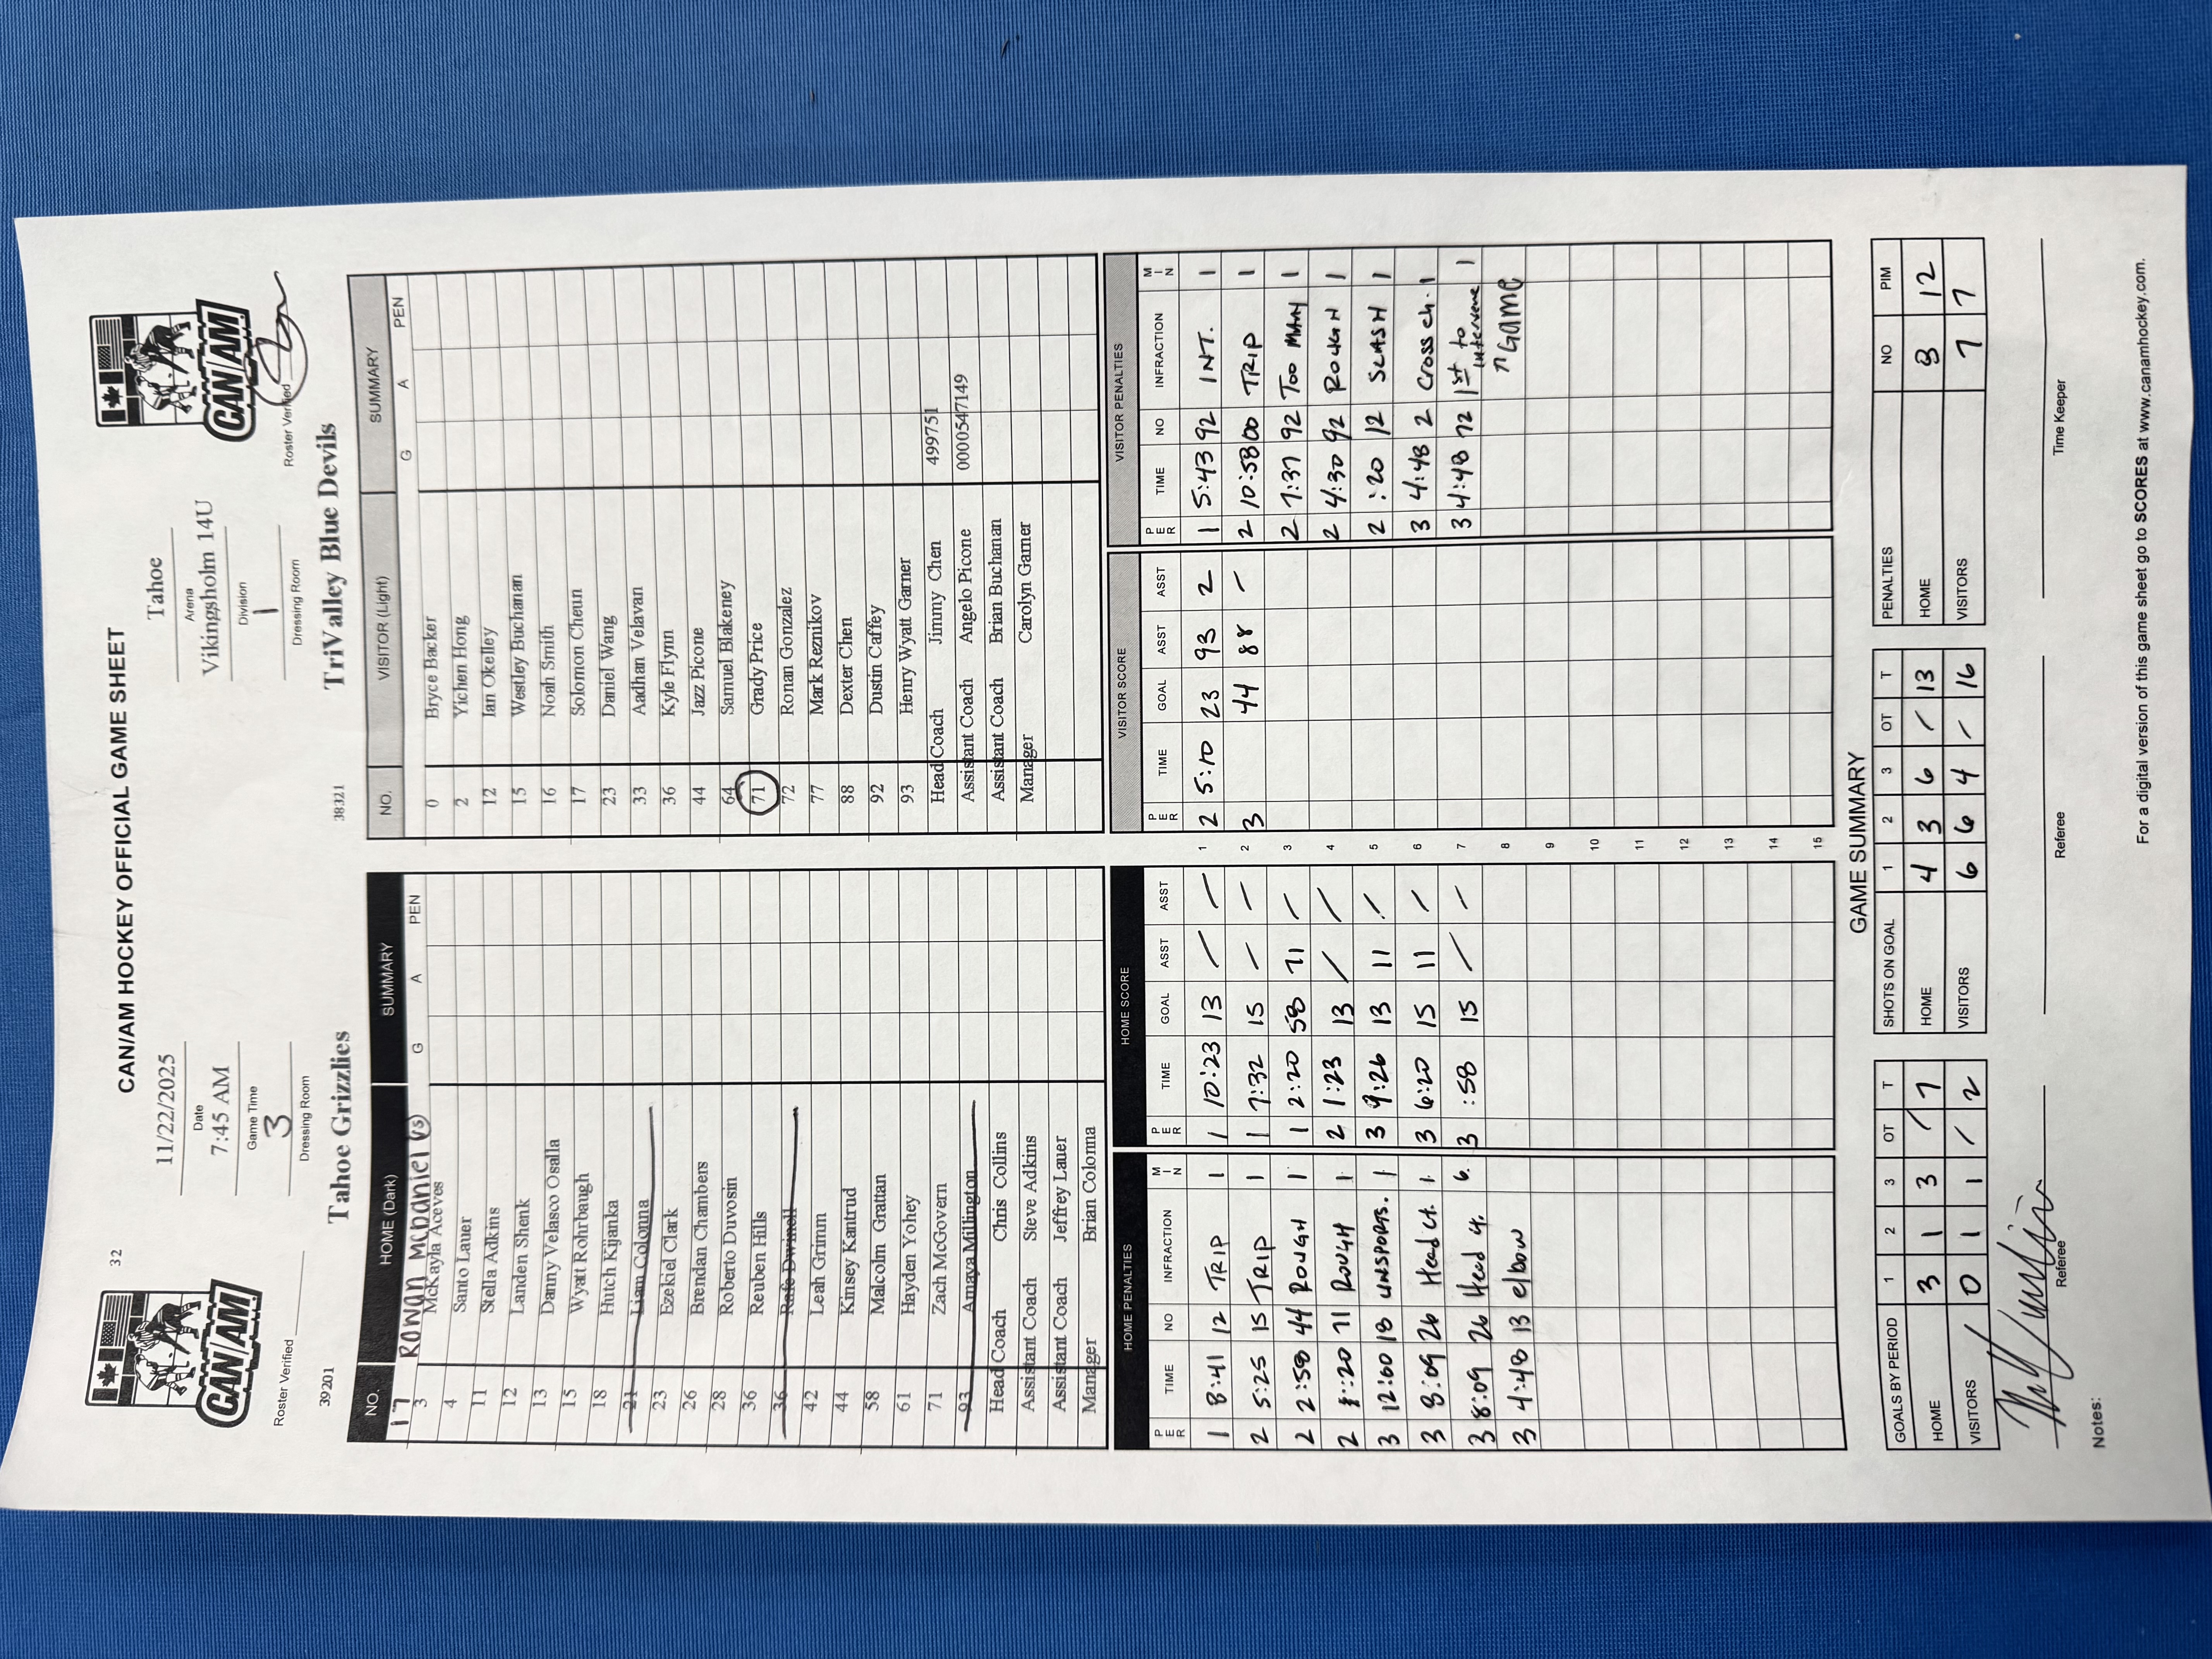 CAN/AM HOCKEY OFFICIAL GAME SHEET
32
CAN/AM
CAN/AM
11/22/2025
Date
7:45 AM
Game Time
3
Dressing Room
Tahoe
Arena
Vikingsholm 14U
Division
1
Dressing Room
Roster Verified
Roster Verified
39201 Tahoe Grizzlies
38321 TriValley Blue Devils
NO. HOME (Dark) SUMMARY
G A PEN
17 Rowan McDaniel VS
3 McKayla Aceves
4 Santo Lauer
11 Stella Adkins
12 Landen Shenk
13 Danny Velasco Osalla
15 Wyatt Rohrbaugh
18 Hutch Kijanka
21 Liam Colonna
23 Ezekiel Clark
26 Brendan Chambers
28 Roberto Duvosin
36 Reuben Hills
36 Rafe Dwinell
42 Leah Grimm
44 Kinsey Kantrud
58 Malcolm Grattan
61 Hayden Yohey
71 Zach McGovern
93 Amaya Millington
Head Coach Chris Collins
Assistant Coach Steve Adkins
Assistant Coach Jeffrey Lauer
Manager Brian Colonna
NO. VISITOR (Light) SUMMARY
G A PEN
0 Bryce Backer
2 Yichen Hong
12 Ian Okelley
15 Westley Buchanan
16 Noah Smith
17 Solomon Cheun
23 Daniel Wang
33 Aadhan Velavan
36 Kyle Flynn
44 Jazz Picone
64 Samuel Blakeney
71 Grady Price
72 Ronan Gonzalez
77 Mark Reznikov
88 Dexter Chen
92 Dustin Caffey
93 Henry Wyatt Garner
Head Coach Jimmy Chen 499751
Assistant Coach Angelo Picone 0000547149
Assistant Coach Brian Buchanan
Manager Carolyn Garner
HOME PENALTIES
PER TIME NO INFRACTION MIN
1 8:41 12 TRIP 1
2 5:25 15 TRIP 1
2 2:58 44 ROUGH 1
2 :20 71 ROUGH 1
3 12:00 13 UNSPORTS. 1
3 8:09 26 Head ct. 1
3 8:09 26 Head 4. 6
3 4:48 13 elbow
HOME SCORE
PER TIME GOAL ASST ASST
1 10:23 13 / /
1 7:32 15 - -
1 2:20 58 71 /
2 1:23 13 / /
3 9:26 13 11 /
3 6:20 15 11 /
3 :58 15 / /
1
2
3
4
5
6
7
8
9
10
11
12
13
14
15
VISITOR SCORE
PER TIME GOAL ASST ASST
2 5:10 23 93 2
3 44 88 -
VISITOR PENALTIES
PER TIME NO INFRACTION MIN
1 5:43 92 INT. 1
2 10:58 00 TRIP 1
2 7:37 92 TOO MANY 1
2 4:30 92 ROUGH 1
2 :20 12 SLASH 1
3 4:48 2 Cross ch. 1
3 4:48 72 1st to intervene 1
Game
GAME SUMMARY
GOALS BY PERIOD 1 2 3 OT T
HOME 3 1 3 / 7
VISITORS 0 1 1 / 2
SHOTS ON GOAL 1 2 3 OT T
HOME 4 3 6 / 13
VISITORS 6 6 4 / 16
PENALTIES NO PIM
HOME 8 12
VISITORS 7 7
Referee
Referee
Time Keeper
Notes:
For a digital version of this game sheet go to SCORES at www.canamhockey.com.